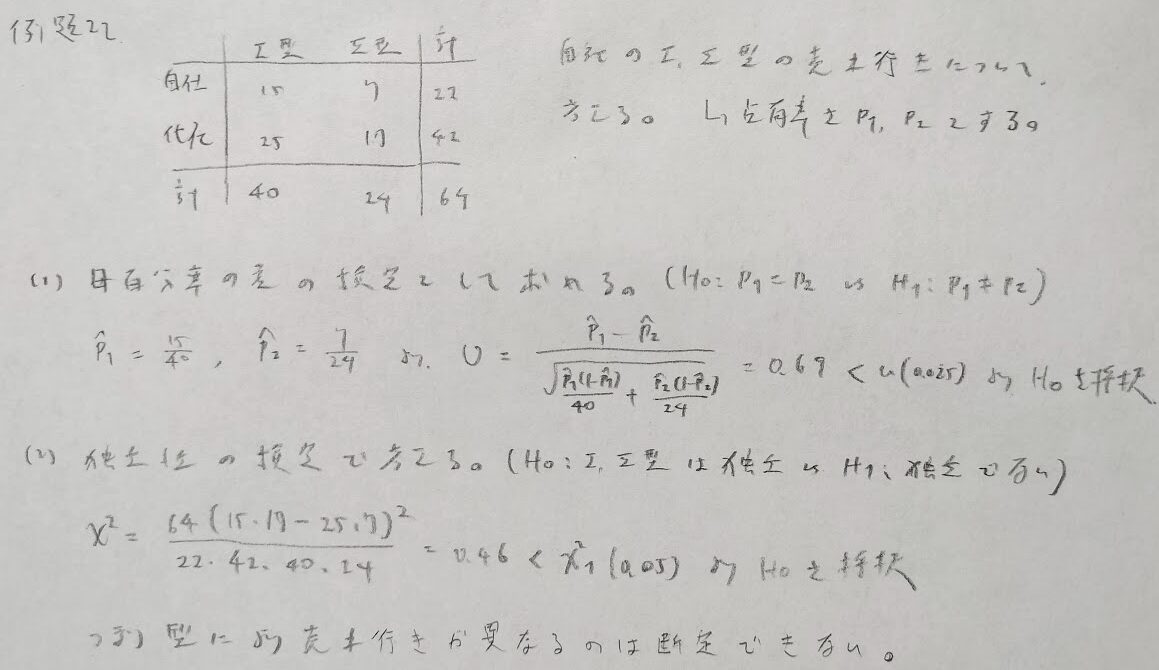 例題22
Ⅰ型 Ⅱ型 計
自社 15 7 22
他社 25 17 42
計 40 24 64
自社のⅠ, Ⅱ型の売れ行きについて
考える。 占有率をP1, P2とする。
(1) 母百分率の差の検定としてみれる。(H0: P1 = P2 vs H1: P1 ≠ P2)
p̂1 = 15/40, p̂2 = 7/24 より. U = (p̂1 - p̂2) / √(p̂1(1-p̂1)/40 + p̂2(1-p̂2)/24) = 0.69 < u(0.025) より H0を採択
(2) 独立性の検定で考える。(H0: Ⅰ, Ⅱ型は独立 vs H1: 独立でない)
χ² = 64(15・17 - 25・7)² / 22・42・40・24 = 0.46 < χ²1(0.05) より H0を採択
つまり型により売れ行きが異なるのは断定できない。